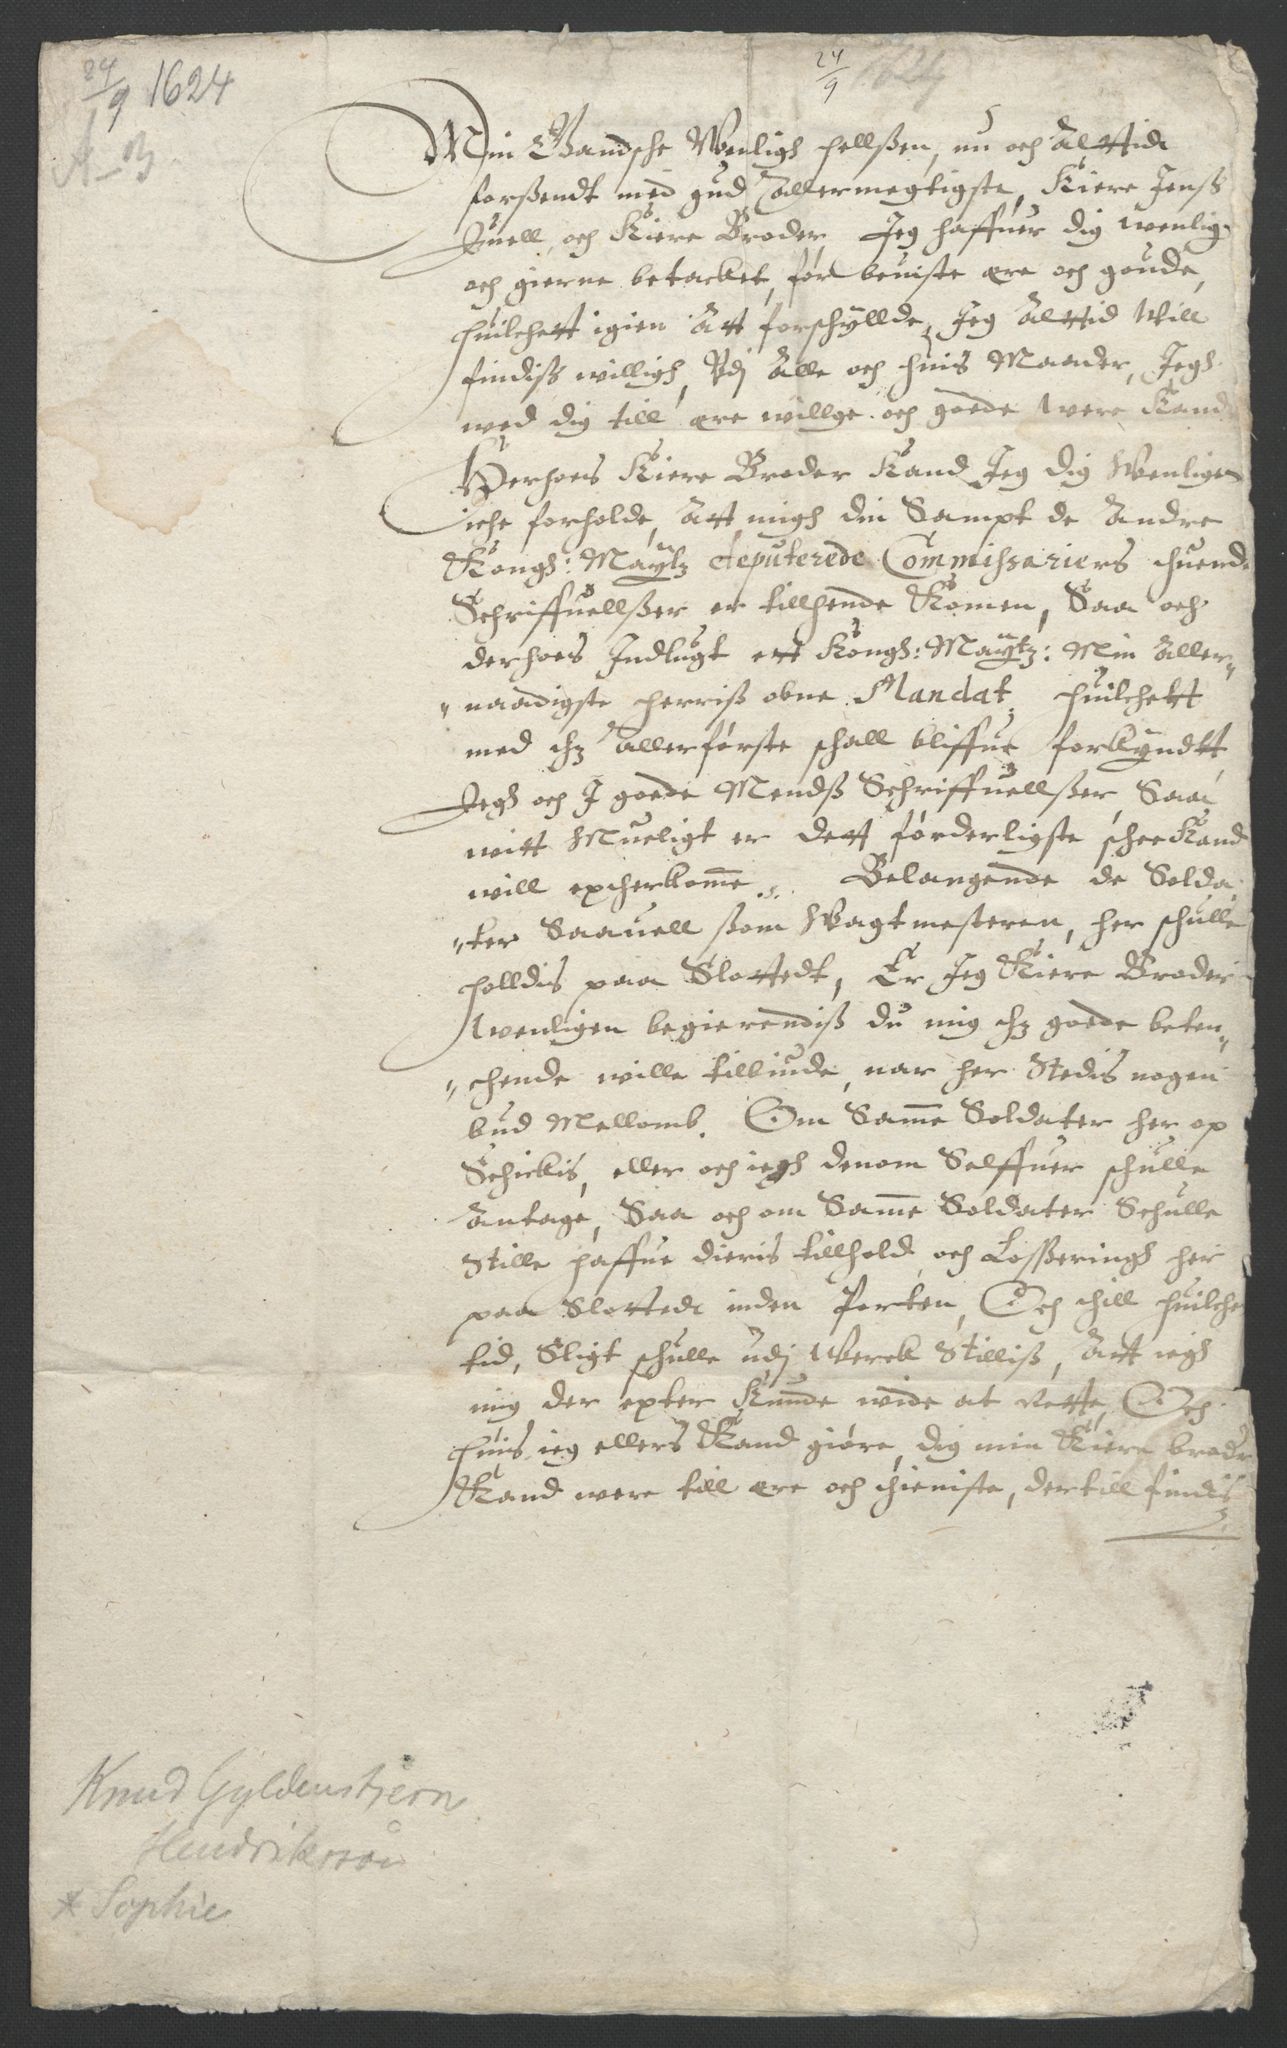 24/9 1624
24/9 1624
A_3
Min Gandsche Wenligh hellßen, nu och Altidt
forßendt med gud Allermegtigste, Kiere Jenß
Juell, och Kiere Broder Jeg haffuer dig wenlig
och gierne betacket, for beuiste ære och goude,
huilchett igien Att forschyllde, Jeg Alttid Will
findiß willigh, Udj Alle och huis Maader, Jegh
med dig till ære willge och goede were Kand
Herhoes Kiere Broder Kand Jeg dig Wenligen
iche forholde, Att migh din Sampt de Andre
Kongh: Maytz deputerede Commissariers
Schriffuellßer er tillhende Komen, Saa och
derhoes Indlugt ett Kongh: Maytz: Min Aller-
naadigste herriß obne Mandat, huilchett
med Allerførste schall bliffue forkyndtt
Jegh och I goede Mendß Schriffuellßer Saa
witt Mueligt er dett forderligste schee Kand
will epcherkomme. Belangende de Solda-
ter Saauell ßom Wagtmesteren, her schulle
holldis paa Slottedt, Er Jeg Kiere Broder
wenligen begierendiß du mig goede beten-
chende wille tilbiude, nar her Stedis nogen
bud Mellomb. Om Samme Soldater her op
Schickis, eller och iegh denom Selffuer schulle
Antage, Saa och om Samme Soldater Schulle
Stille haffue dieris tillhold och Losßeringh her
paa Slottedt inden Porten, Och thill huilche
tid, Sligt schulle udj Werck Stilliß, Att iegh
mig der epter Kunde wide at rette, Och
huis ieg ellers Kand giøre, dig min Kiere broder
Kand were till ære och thieniste, dertill findis
Knud Gyldenstjern
Hendriksson
* Sophie